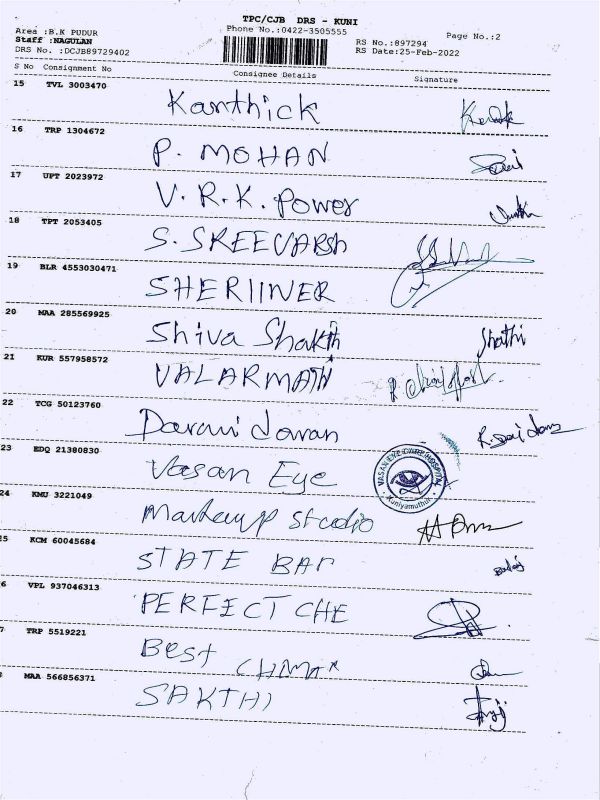 TPC/CJB DRS - KUNI
Area :B.K PUDUR Phone No.:0422-3505555 Page No.:2
Staff :NAGULAN RS No.:897294
DRS No. :DCJB89729402 RS Date:25-Feb-2022
S No Consignment No Consignee Details Signature
15 TVL 3003470
Karthick
16 TRP 1304672
P. MOHAN
17 UPT 2023972
V. R. K. Power
18 TPT 2053405
S. SREEVARSH
19 BLR 4553030471
20 MAA 285569925
Shiva Shakthi Shathi
21 KUR 557958572
VALARMATHI
22 TCG 50123760
23 EDQ 21380830
Vasan Eye
VASAN EYE CARE HOSPITAL
Kuniyamuthur
24 KMU 3221049
Makeup Studio
5 KCM 60045684
STATE BAN
6 VPL 937046313
PERFECT CHE
7 TRP 5519221
Best
MAA 566856371
SAKTHI